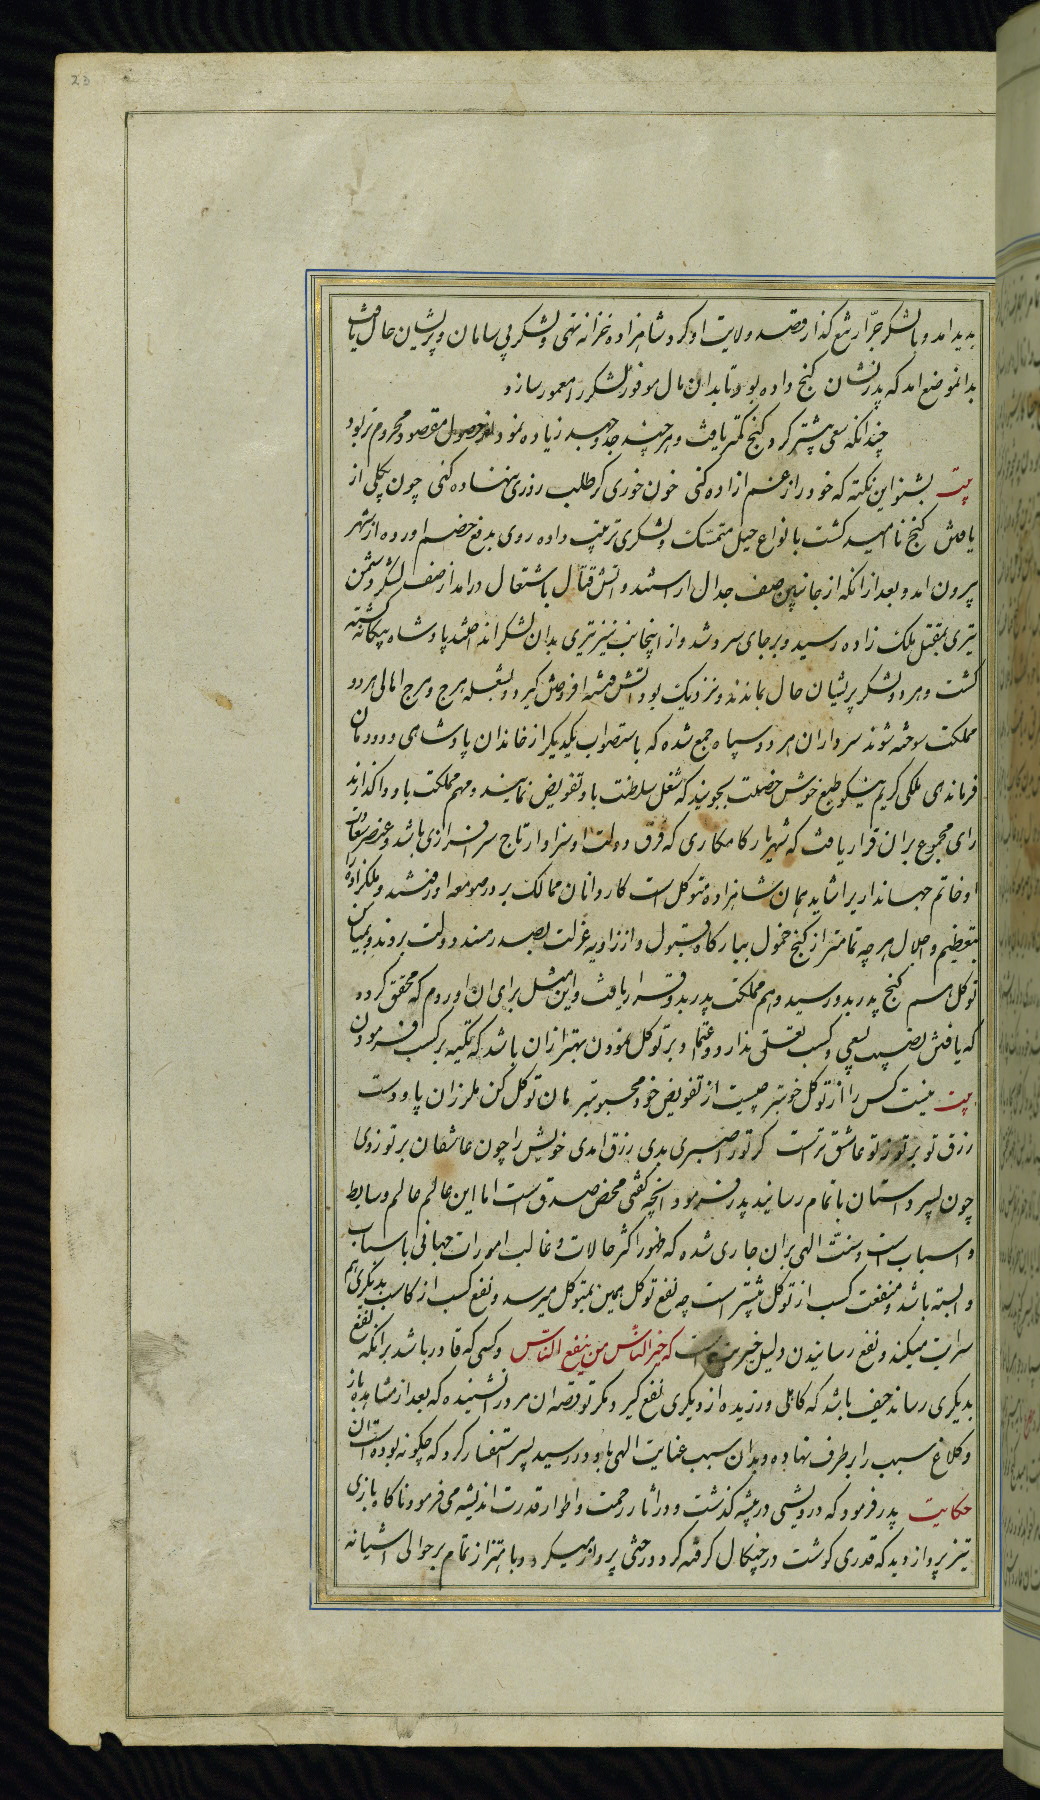 23
بدید امد و بالشکر جرّار تیغ کذار قصد ولایت او کرد شاهزاده خزانه تهی و لشکر بی سامان و پریشان حال یافت
بدانموضع امد که پدر نشان کنج داده بود تا بدان مال موفور لشکر را معمور سازد
چندانکه سعی بیشتر کرد کنج کمتر یافت و هر چند جد و جهد زیاده نمود از حصول مقصود محروم تر بود
بیت بشنو این نکته که خود را ز غم ازاده کنی خون خوری کر طلب روزی ننهاده کنی چون بکلی از
یافتن کنج نا امید کشت بانواع حیل متمسک و لشکری ترتیب داده روی بدفع خصم اورده از شهر
بیرون امد و بعد از انکه از جانبین صف جدال اراستند و اتش قتال باشتعال درامد از صف لشکر دشمن
تیری بمقتل ملک زاده رسید و بر جای سرد شد و از اینجانب نیز تیری بدان لشکر انداختند پادشاه بیکانه کشته
کشت و هر دو لشکر پریشان حال بماندند و نزدیک بود اتش فتنه افروختن کیرد و بشعله هرج و مرج اهالی هر دو
مملکت سوخته شوند سرداران هر دو سپاه جمع شده که باستصواب یکدیکر از خاندان پادشاهی و دودمان
فرماندهی ملکی کریم نیکو طبع خوش خصلت بجویند که شغل سلطنت باو تفویض نمایند و مهم مملکت باو واکذارند
رای مجموع بران قرار یافت که شهریار کامکاری که فرق دولت او سزاوار تاج سرافرازی باشد و خنصر سعادت
او خاتم جهانداری را شاید همان شاهزاده متوکل است کاردانان ممالک بر در صومعه او رفتند و ملکزاده را
بتعظیم و اجلال هر چه تمامتر از کنج خمول ببارکاه قبول و از زاویه عزلت بصدر مسند دولت بردند و بمیامن
توکل هم کنج پدر بدو رسید و هم مملکت پدر بدو قرار یافت و این مثل برای ان اوردم که محقق کردد
که یافتن نصیب بسعی و کسب تعلقی ندارد و اعتماد بر توکل نمودن بهتر ازان باشد که تکیه بر کسب فرمودن
بیت نیست کسبی از توکل خوبتر چیست از تفویض خود محبوبتر هان توکل کن ملرزان پا و دست
رزق تو بر تو ز تو عاشق ترست کر تو را صبری بدی رزق امدی خویش را چون عاشقان بر تو زدی
چون پسر داستان باتمام رسانید پدر فرمود انچه کفتی محض صدق است اما این عالم عالم وسایط
و اسباب است و سنت الهی بران جاری شده که ظهور اکثر حالات و غالب امورات جهانی باسباب
وابسته باشد و منفعت کسب از توکل بیشتر است چه نفع توکل همین بمتوکل میرسد و نفع کسب از کاسب بدیکری هم
سرایت میکند و نفع رسانیدن دلیل خیریت است که خیر الناس من ینفع الناس و کسی که قادر باشد برانکه نفع
بدیکری رساند حیف باشد که کاهلی ورزیده از دیکری نفع کیرد مکر تو قصه ان مرد نشنیده که بعد از مشاهده باز
و کلاغ سبب را بر طرف نهاده و بدان سبب عنایت الهی باو در رسید پسر استفسار کرد که چکونه بوده است ان
حکایت پدر فرمود که درویشی در بیشه کذشت و در اثار رحمت و اطوار قدرت اندیشه می فرمود ناکاه بازی
تیز پرواز دید که قدری کوشت در چنکال کرفته کرد درختی پرواز میکرد و باهتزاز تمام بر حوالی اشیانه